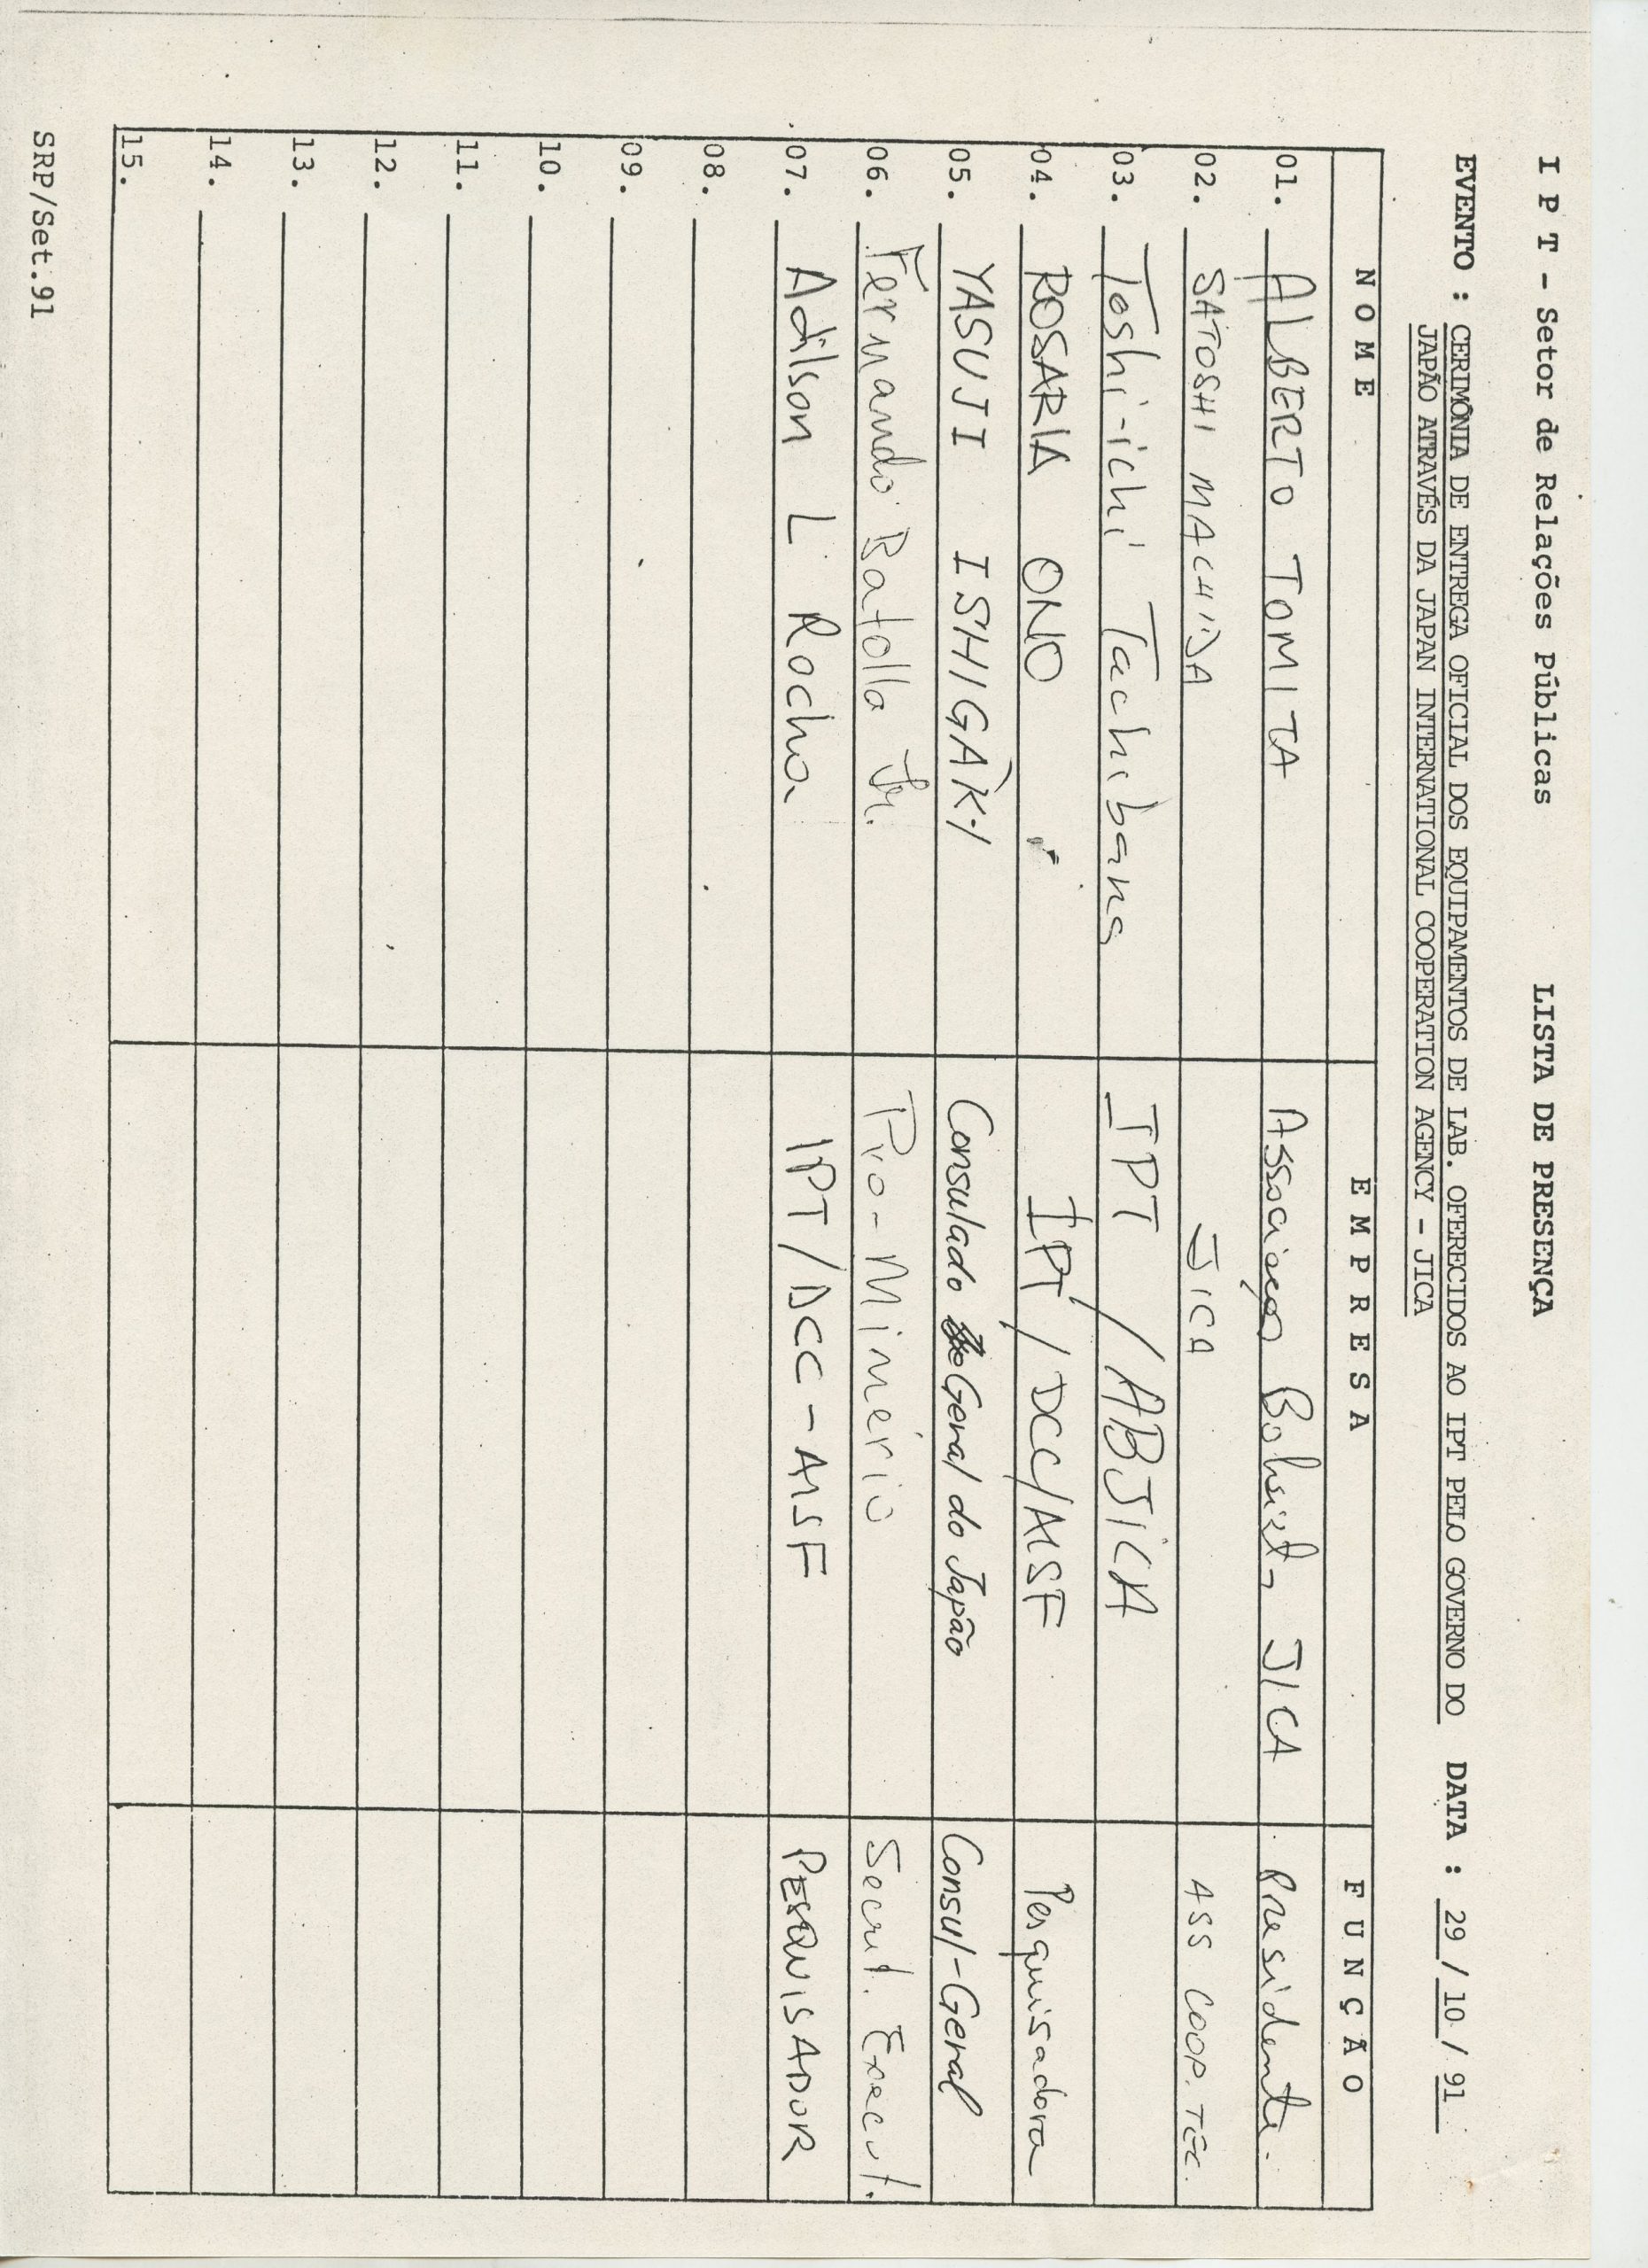 I P T - Setor de Relações Públicas LISTA DE PRESENÇA
EVENTO : CERIMÔNIA DE ENTREGA OFICIAL DOS EQUIPAMENTOS DE LAB. OFERECIDOS AO IPT PELO GOVERNO DO DATA : 29 / 10 / 91
JAPÃO ATRAVÉS DA JAPAN INTERNATIONAL COOPERATION AGENCY - JICA
N O M E E M P R E S A F U N Ç Ã O
01. ALBERTO TOMITA Associação Bolsista JICA Presidente.
02. SATOSHI MACHIDA JICA ASS COOP. TEC.
03. Toshi-ichi Tachibana IPT / ABJICA
04. ROSARIA ONO IPT / DCC/AISF Pesquisadora
05. YASUJI ISHIGAKI Consulado Geral do Japão Consul-Geral
06. Fernando Batolla Jr. Pro-Minério Secret. Execut.
07. Adilson L Rocha IPT/DCC-AISF PESQUISADOR
08.
09.
10.
11.
12.
13.
14.
15.
SRP/Set.91